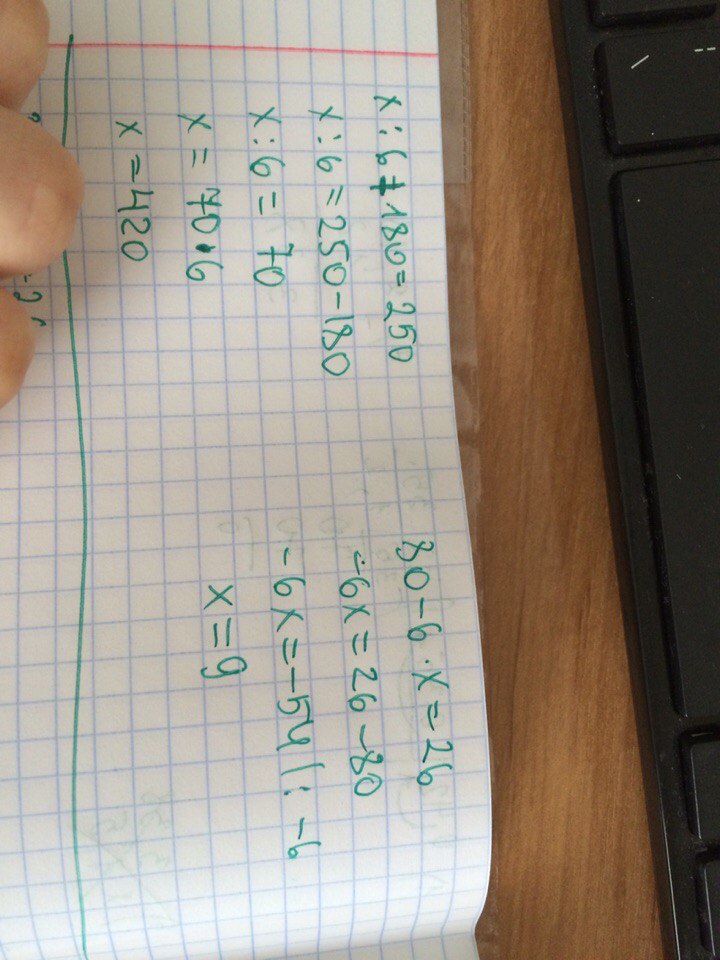 x:6+180=250
x:6=250-180
x:6=70
x=70·6
x=420
80-6·x=26
-6x=26-80
-6x=-54 |:-6
x=9